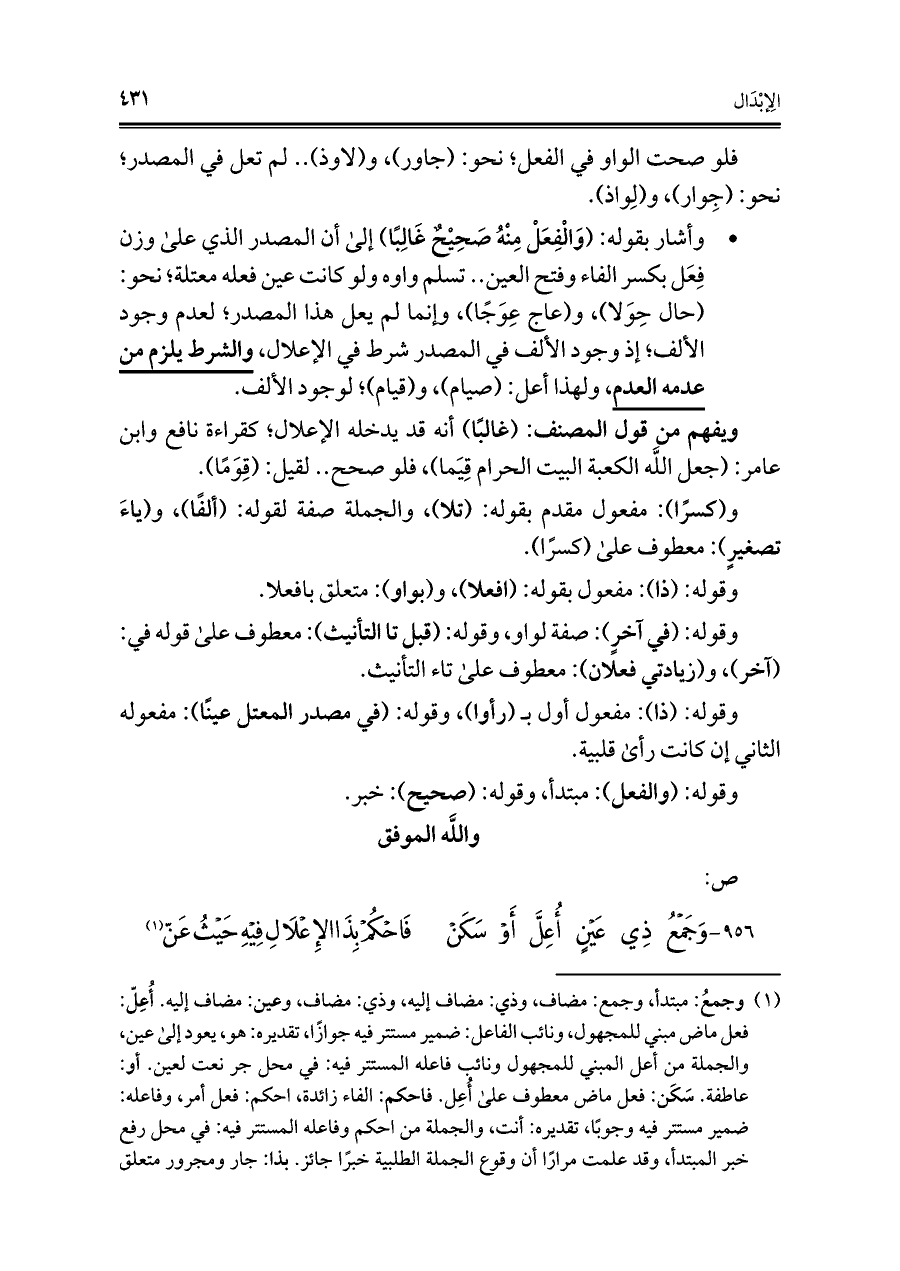 الإِبْدَال ٤٣١
فلو صحت الواو في الفعل؛ نحو: (جاور)، و(لاوذ).. لم تعل في المصدر؛
نحو: (جِوار)، و(لِواذ).
• وأشار بقوله: (وَالْفِعَلْ مِنْهُ صَحِيْحٌ غَالِبًا) إلىٰ أن المصدر الذي علىٰ وزن
فِعَل بكسر الفاء وفتح العين.. تسلم واوه ولو كانت عين فعله معتلة؛ نحو:
(حال حِوَلا)، و(عاج عِوَجًا)، وإنما لم يعل هذا المصدر؛ لعدم وجود
الألف؛ إذ وجود الألف في المصدر شرط في الإعلال، والشرط يلزم من
عدمه العدم، ولهذا أعل: (صيام)، و(قيام)؛ لوجود الألف.
ويفهم من قول المصنف: (غالبًا) أنه قد يدخله الإعلال؛ كقراءة نافع وابن
عامر: (جعل اللَّه الكعبة البيت الحرام قِيَما)، فلو صحح.. لقيل: (قِوَمًا).
و(كسرًا): مفعول مقدم بقوله: (تلا)، والجملة صفة لقوله: (ألفًا)، و(ياءَ
تصغيرٍ): معطوف علىٰ (كسرًا).
وقوله: (ذا): مفعول بقوله: (افعلا)، و(بواو): متعلق بافعلا.
وقوله: (في آخرٍ): صفة لواو، وقوله: (قبل تا التأنيث): معطوف علىٰ قوله في:
(آخر)، و(زيادتي فعلان): معطوف علىٰ تاء التأنيث.
وقوله: (ذا): مفعول أول بـ (رأوا)، وقوله: (في مصدر المعتل عينًا): مفعوله
الثاني إن كانت رأىٰ قلبية.
وقوله: (والفعل): مبتدأ، وقوله: (صحيح): خبر.
واللَّه الموفق
ص:
٩٥٦- وَجَمْعُ ذِي عَيْنٍ أُعِلَّ أَوْ سَكَنْ فَاحْكُمْ بِذَا الإِعْلَالِ فِيْهِ حَيْثُ عَنّ(١)
(١) وجمعُ: مبتدأ، وجمع: مضاف، وذي: مضاف إليه، وذي: مضاف، وعين: مضاف إليه. أُعِلّ:
فعل ماض مبني للمجهول، ونائب الفاعل: ضمير مستتر فيه جوازًا، تقديره: هو، يعود إلىٰ عين،
والجملة من أعل المبني للمجهول ونائب فاعله المستتر فيه: في محل جر نعت لعين. أو:
عاطفة. سَكَن: فعل ماض معطوف علىٰ أُعِل. فاحكم: الفاء زائدة، احكم: فعل أمر، وفاعله:
ضمير مستتر فيه وجوبًا، تقديره: أنت، والجملة من احكم وفاعله المستتر فيه: في محل رفع
خبر المبتدأ، وقد علمت مرارًا أن وقوع الجملة الطلبية خبرًا جائز. بذا: جار ومجرور متعلق